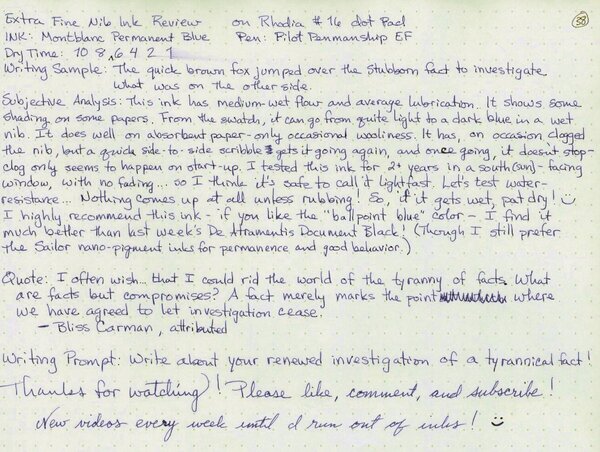 Extra Fine Nib Ink Review on Rhodia #16 dot Pad 38
INK: Montblanc Permanent Blue Pen: Pilot Penmanship EF
Dry Time: 10 8 6 4 2 1
Writing Sample: The quick brown fox jumped over the stubborn fact to investigate
what was on the other side.
Subjective Analysis: This ink has medium-wet flow and average lubrication. It shows some
shading on some papers. From the swatch, it can go from quite light to a dark blue in a wet
nib. It does well on absorbent paper - only occasional wooliness. It has, on occasion clogged
the nib, but a quick side-to-side scribble gets it going again, and once going, it doesn't stop-
clog only seems to happen on start-up. I tested this ink for 2+ years in a south (sun)-facing
window, with no fading... so I think it's safe to call it lightfast. Let's test water-
resistance... Nothing comes up at all unless rubbing! So, if it gets wet, pat dry! :)
I highly recommend this ink - if you like the "ballpoint blue" color - I find it
much better than last week's De Atramentis Document Black! (Though I still prefer
the Sailor nano-pigment inks for permanence and good behavior.)
Quote: I often wish... that I could rid the world of the tyranny of facts. What
are facts but compromises? A fact merely marks the point where
we have agreed to let investigation cease.
- Bliss Carman, attributed
Writing Prompt: Write about your renewed investigation of a tyrannical fact!
Thanks for watching! Please like, comment, and subscribe!
New videos every week until I run out of inks! :)